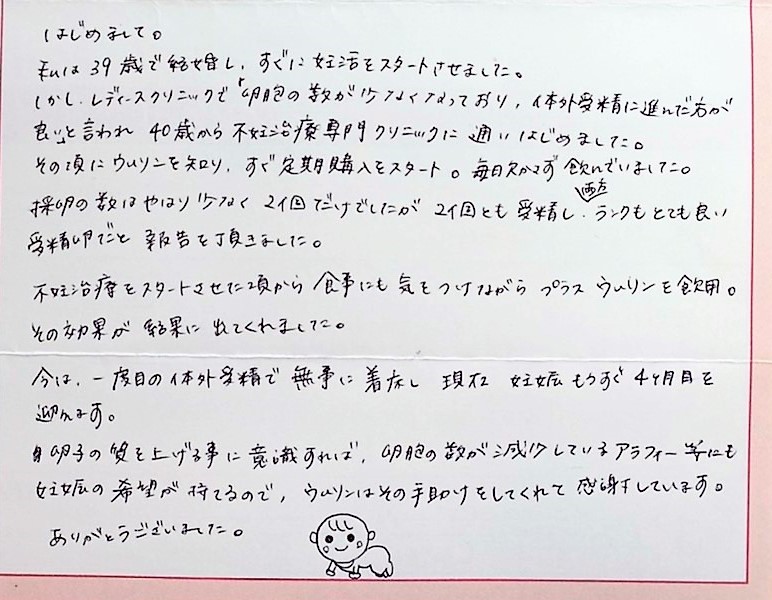 はじめまして。
私は39歳で結婚し、すぐに妊活をスタートさせました。
しかし、レディースクリニックで「卵胞の数が少なくなっており、体外受精に進んだ方が
良い」と言われ 40歳から不妊治療専門クリニックに通いはじめました。
その頃にウムリンを知り、すぐ定期購入をスタート。毎日欠かさず飲んでいました。
採卵の数はやはり少なく 2個だけでしたが 2個とも受精し、両方ランクもとても良い
受精卵でと報告を頂きました。
不妊治療をスタートさせた頃から食事にも気をつけながらプラスウムリンを飲用。
その効果が結果に出てくれました。
今は、一度目の体外受精で無事に着床し 現在 妊娠もうすぐ4ヶ月目を
迎えます。
卵子の質を上げる事に意識すれば、卵胞の数が減少しているアラフォー等にも
妊娠の希望が持てるので、ウムリンはその手助けをしてくれて感謝しています。
ありがとうございました。